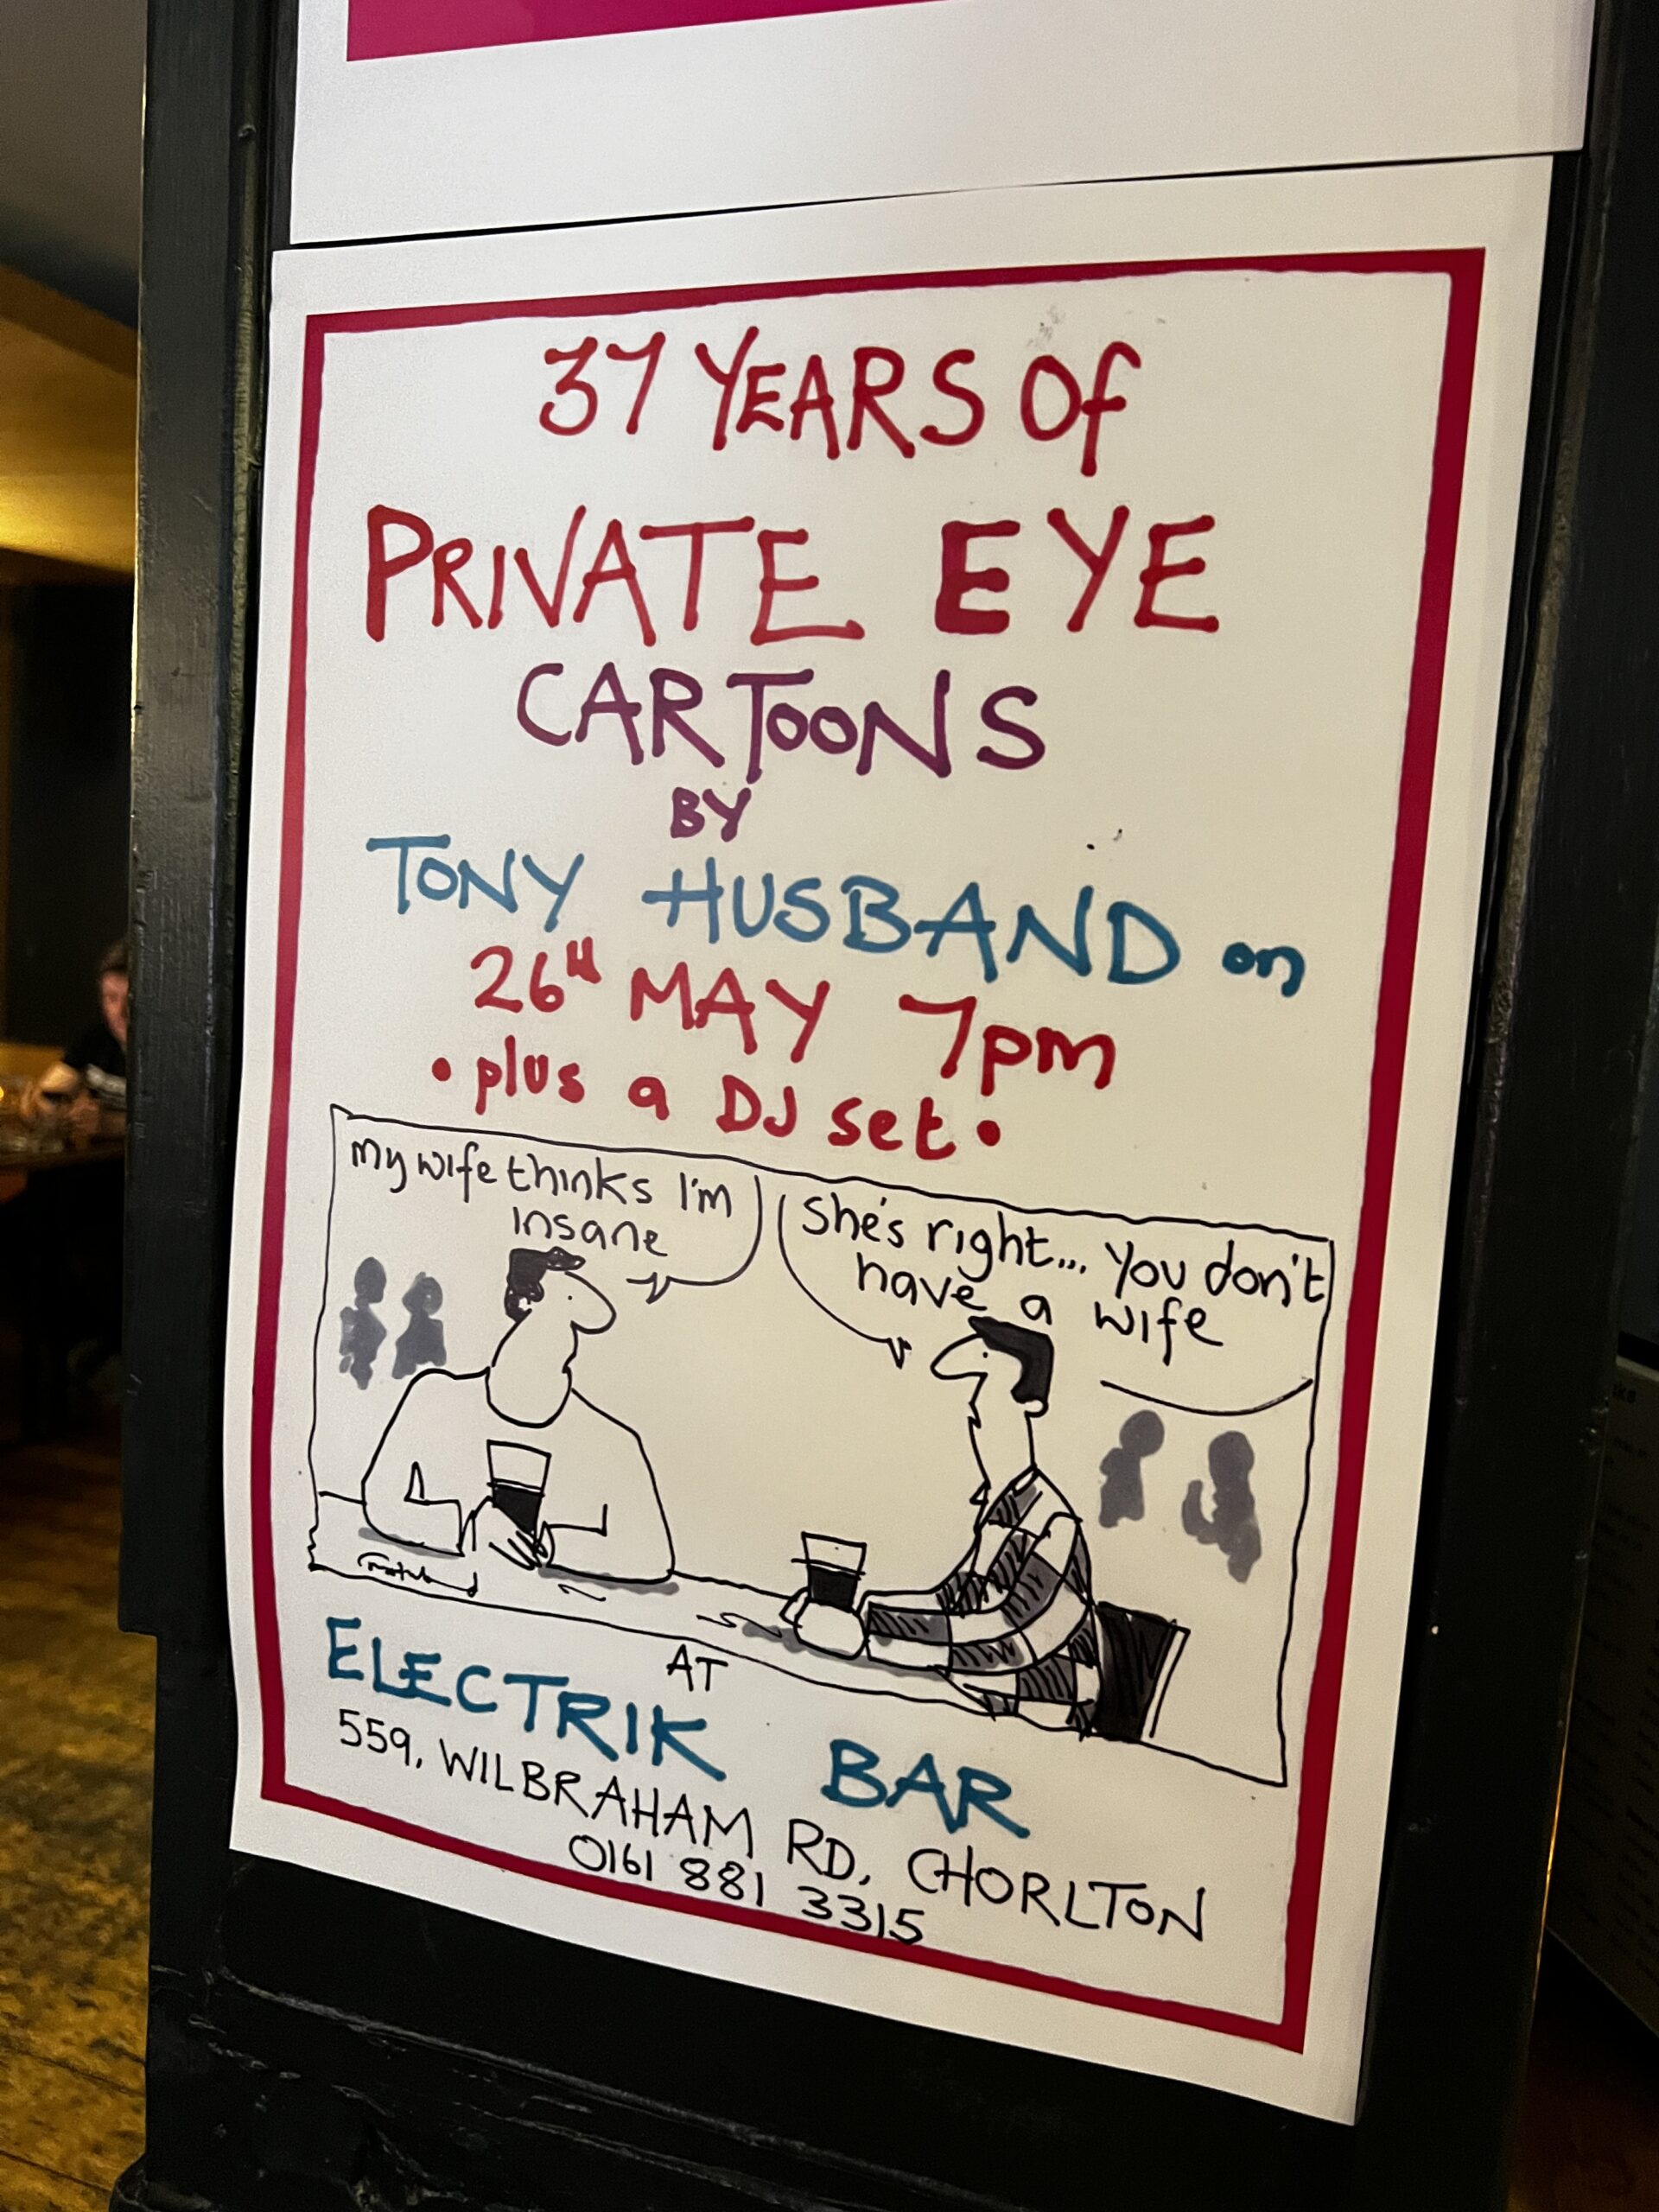 37 YEARS Of
PRIVATE EYE
CARTOONS
BY
TONY HUSBAND on
26th MAY 7pm
• plus a DJ set •
My wife thinks I'm
insane
She's right... You don't
have a wife
AT
ELECTRIK BAR
559, WILBRAHAM RD, CHORLTON
0161 881 3315